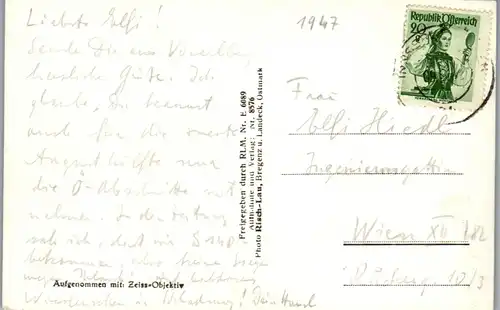 Liebste Elfi!
1947
Republik Österreich
20
Sende Dir aus Vorarlberg
herzliche Grüße. Ich
glaube, Du kannst
auch für die zweite
Augusthälfte nur
die Ö-Abschnitte mit
nehmen. In der Zeitung
sah ich, daß wir S 140.-
bekommen, also keine Sorge
wegen Urlaub!
Wiedersehen in
Freigegeben durch RLM. Nr. E 6089
Aufnahme und Verlag: Nr. 8576
Photo Risch-Lau, Bregenz u. Landeck, Ostmark
Aufgenommen mit: Zeiss-Objektiv
Frau
Elfi Hiedl
Ingenieursgattin
Wien XII/82
10/3